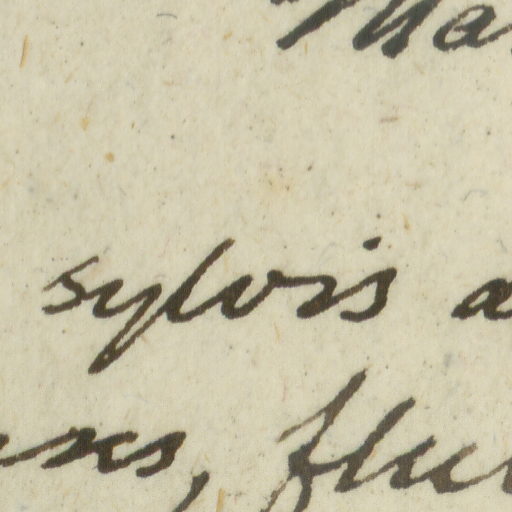 Ma
sylvis a
xs, flu